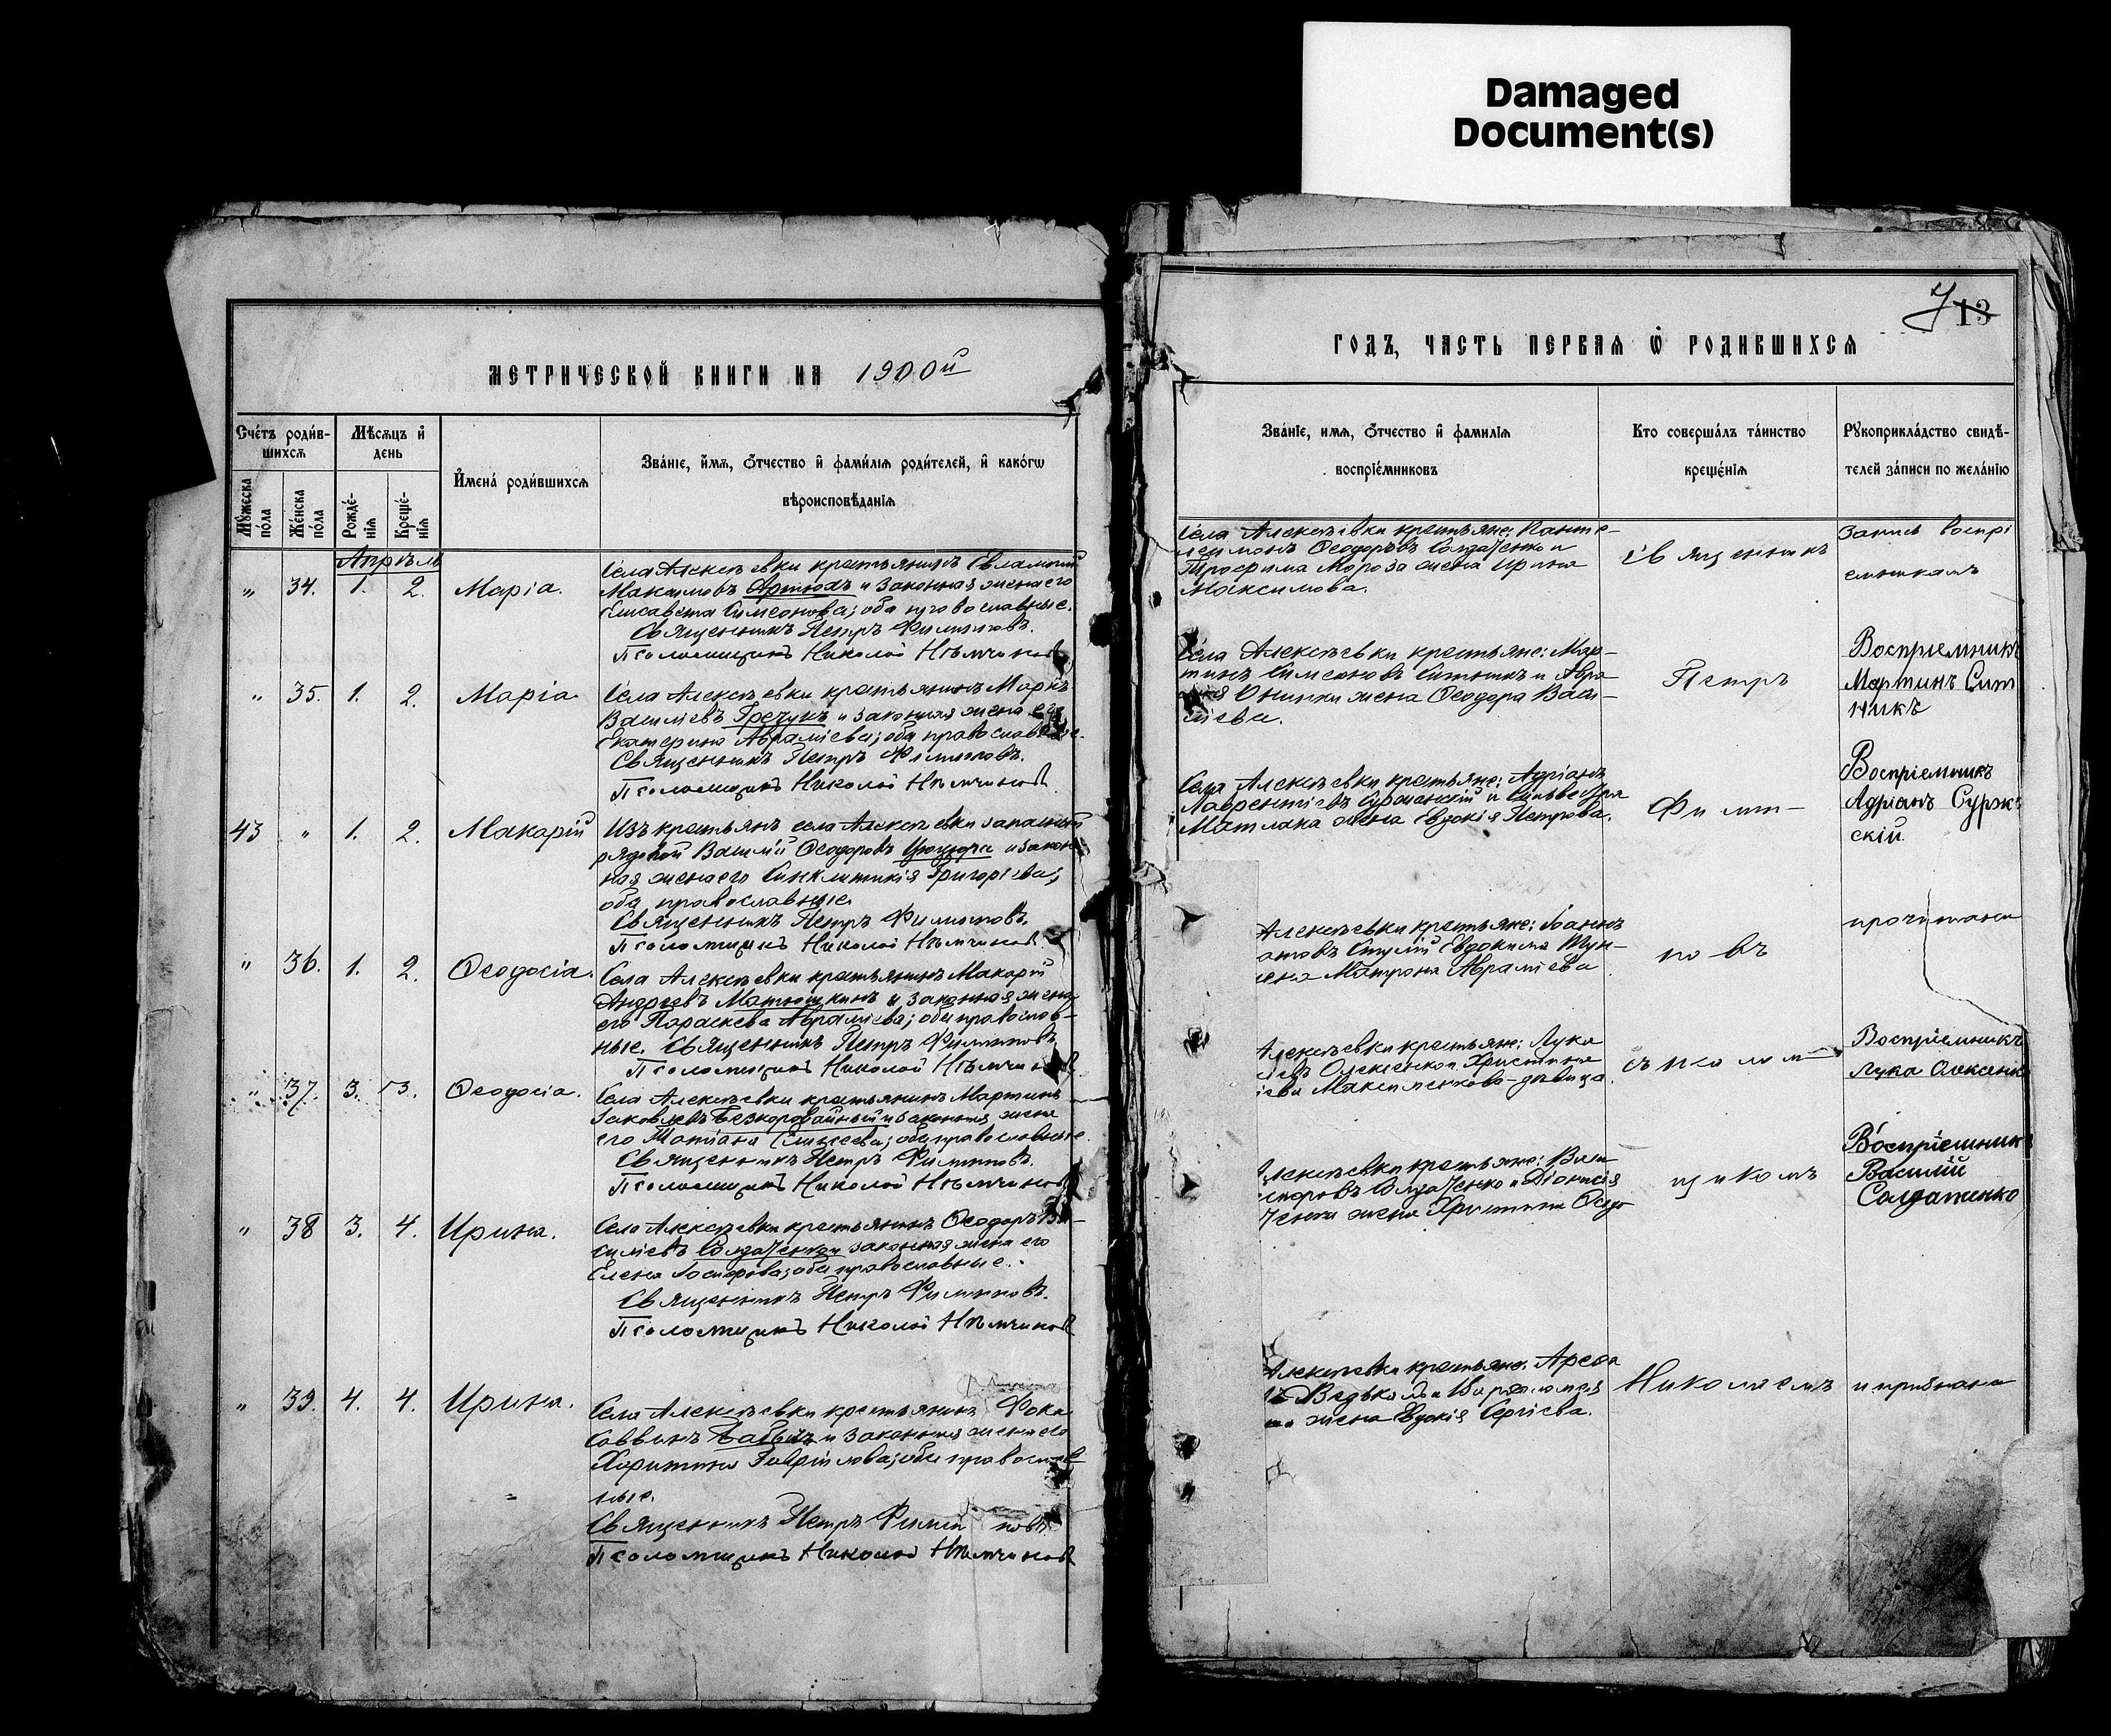 Damaged
Document(s)
МЕТРИЧЕСКОЙ КНИГИ НА 1900й
Счéтъ роди́в-
шихсѧ
Мѣсѧцъ и҆
день
Мꙋ́жеска
по́ла
Же́нска
по́ла
Рожде́-
нїѧ
Креще́-
нїѧ
И҆мена́ роди́вшихсѧ
Зва́нїе, и҆́мѧ, ѻ҆́тчество и҆ фами́лїѧ роди́телей, и҆ како́гѡ
вѣроисповѣ́данїѧ
Апрѣль
„ 34. 1. 2. Марія.
Села Алексѣевки крестьянинъ Евлампій
Максимовъ Артюхъ и законная жена его
Елисавета Симеонова; оба православные.
Священникъ Петръ Филиповъ.
Псаломщикъ Николай Нѣмчиновъ
„ 35. 1. 2. Марія
Села Алексѣевки крестьянинъ Маркъ
Василіевъ Гречукъ и законная жена его
Екатерина Авраміева; оба православные.
Священникъ Петръ Филиповъ.
Псаломщикъ Николай Нѣмчиновъ.
43 „ 1. 2. Макарій
Изъ крестьянъ села Алексѣевки запасный
рядовой Василій Ѳеодоровъ и закон-
ная жена его Синклитикія Григоріева;
оба православные.
Священникъ Петръ Филиповъ.
Псаломщикъ Николай Нѣмчиновъ.
„ 36. 1. 2. Ѳеодосія.
Села Алексѣевки крестьянинъ Макарій
Андреевъ Матюшкинъ и законная жена
его Параскева Авраміева; оба православ-
ные. Священникъ Петръ Филиповъ
Псаломщикъ Николай Нѣмчиновъ
„ 37. 3. 3. Ѳеодосія.
Села Алексѣевки крестьянинъ Мартинъ
Іаковлевъ Безкоровайный и законная жена
его Татіана Елисеева; оба православные.
Священникъ Петръ Филиповъ.
Псаломщикъ Николай Нѣмчиновъ
„ 38 3. 4. Ирина.
Села Алексѣевки крестьянинъ Ѳеодоръ Ва-
силіевъ Солдаченко и законная жена его
Елена Іосифова; оба православные.
Священникъ Петръ Филиповъ.
Псаломщикъ Николай Нѣмчиновъ
„ 39. 4. 4. Ирина.
Села Алексѣевки крестьянинъ Фока
Саввинъ Бабычъ и законная жена его
Харитина Гавріилова; оба православ-
ные.
Священникъ Петръ Филиповъ.
Псаломщикъ Николай Нѣмчиновъ
7 13
ГОДЪ, ЧАСТЬ ПЕРВАѦ Ѡ҆ РОДИВШИХСѦ
Зва́нїе, имѧ, ѻ҆́тчество и҆ фамилїѧ
воспрїе́мниковъ
Кто соверша́лъ та́инство
креще́нїѧ
Рꙋкоприкла́дство свидѣ́-
телей за́писи по жела́нїю
Села Алексѣевки крестьяне: Панте-
леимонъ Ѳеодоровъ Солдаченко и
Трофима Мороза жена Ирина
Максимова.
Священникъ
Запись воспрі
емникамъ
Села Алексѣевки крестьяне: Мар-
тинъ Симеоновъ Ситникъ и
жена Ѳеодора Васи-
ліева.
Петръ
Воспріемникъ
Мартинъ Сит
никъ
Села Алексѣевки крестьяне: Адріанъ
Лаврентіевъ Суржскій и Сильвестра
Матлака жена Евдокія Петрова.
Фили-
Воспріемникъ
Адріанъ Сурж
скій.
Алексѣевки крестьяне: Іоаннъ
Евдокима
Матрона Авраміева
повъ
прочитана
Алексѣевки крестьяне: Лука
Олексенко и Христина
Максименкова-дѣвица.
съ псалом-
Воспріемникъ
Лука Олексенко
Алексѣевки крестьяне: Васи
Солдаченко и Діонисія
ченка жена Христина Ѳеодо
щикомъ
Воспріемник
Василій
Солдатенко
Алексѣевки крестьяне: Арефа
Ведькало и Варѳоломея
жена Евдокія Сергіева.
Николаемъ
и признана